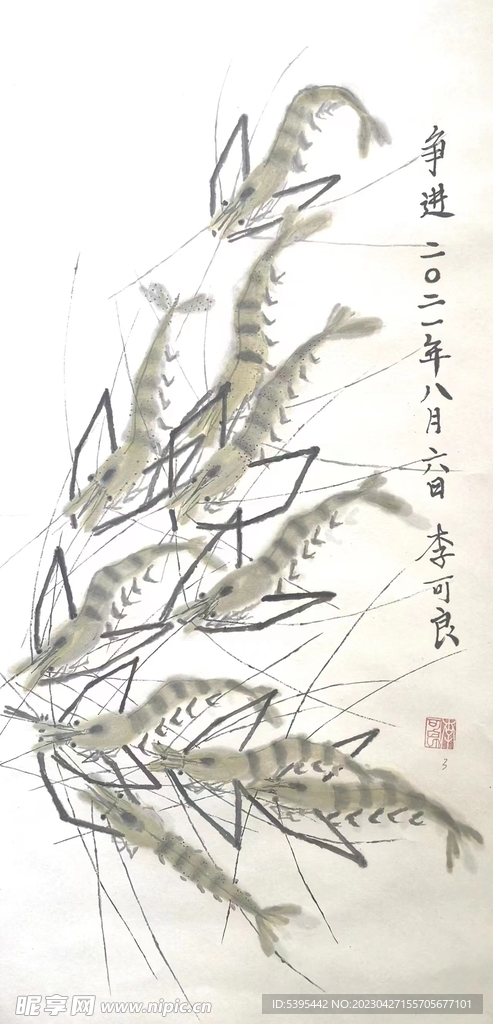 争进 二〇二一年八月六日 李可良
李可良
3
昵享网 www.nipic.cn
ID:5395442 NO:20230427155705677101